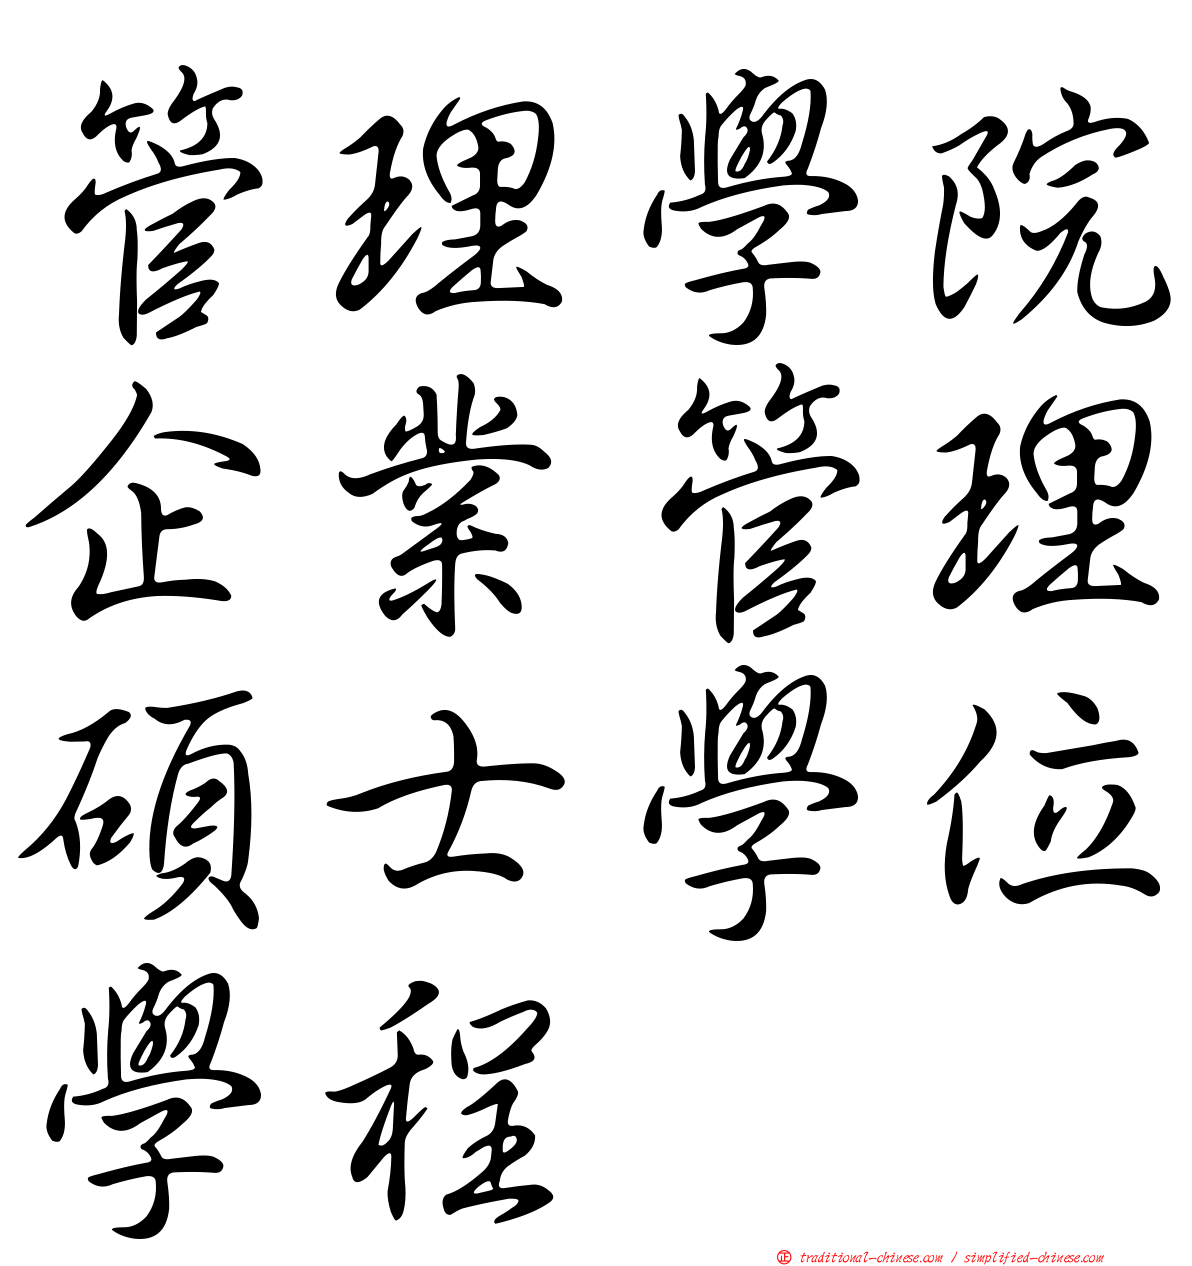 管理學院
企業管理
碩士學位
學程
正 traditional-chinese.com / simplified-chinese.com